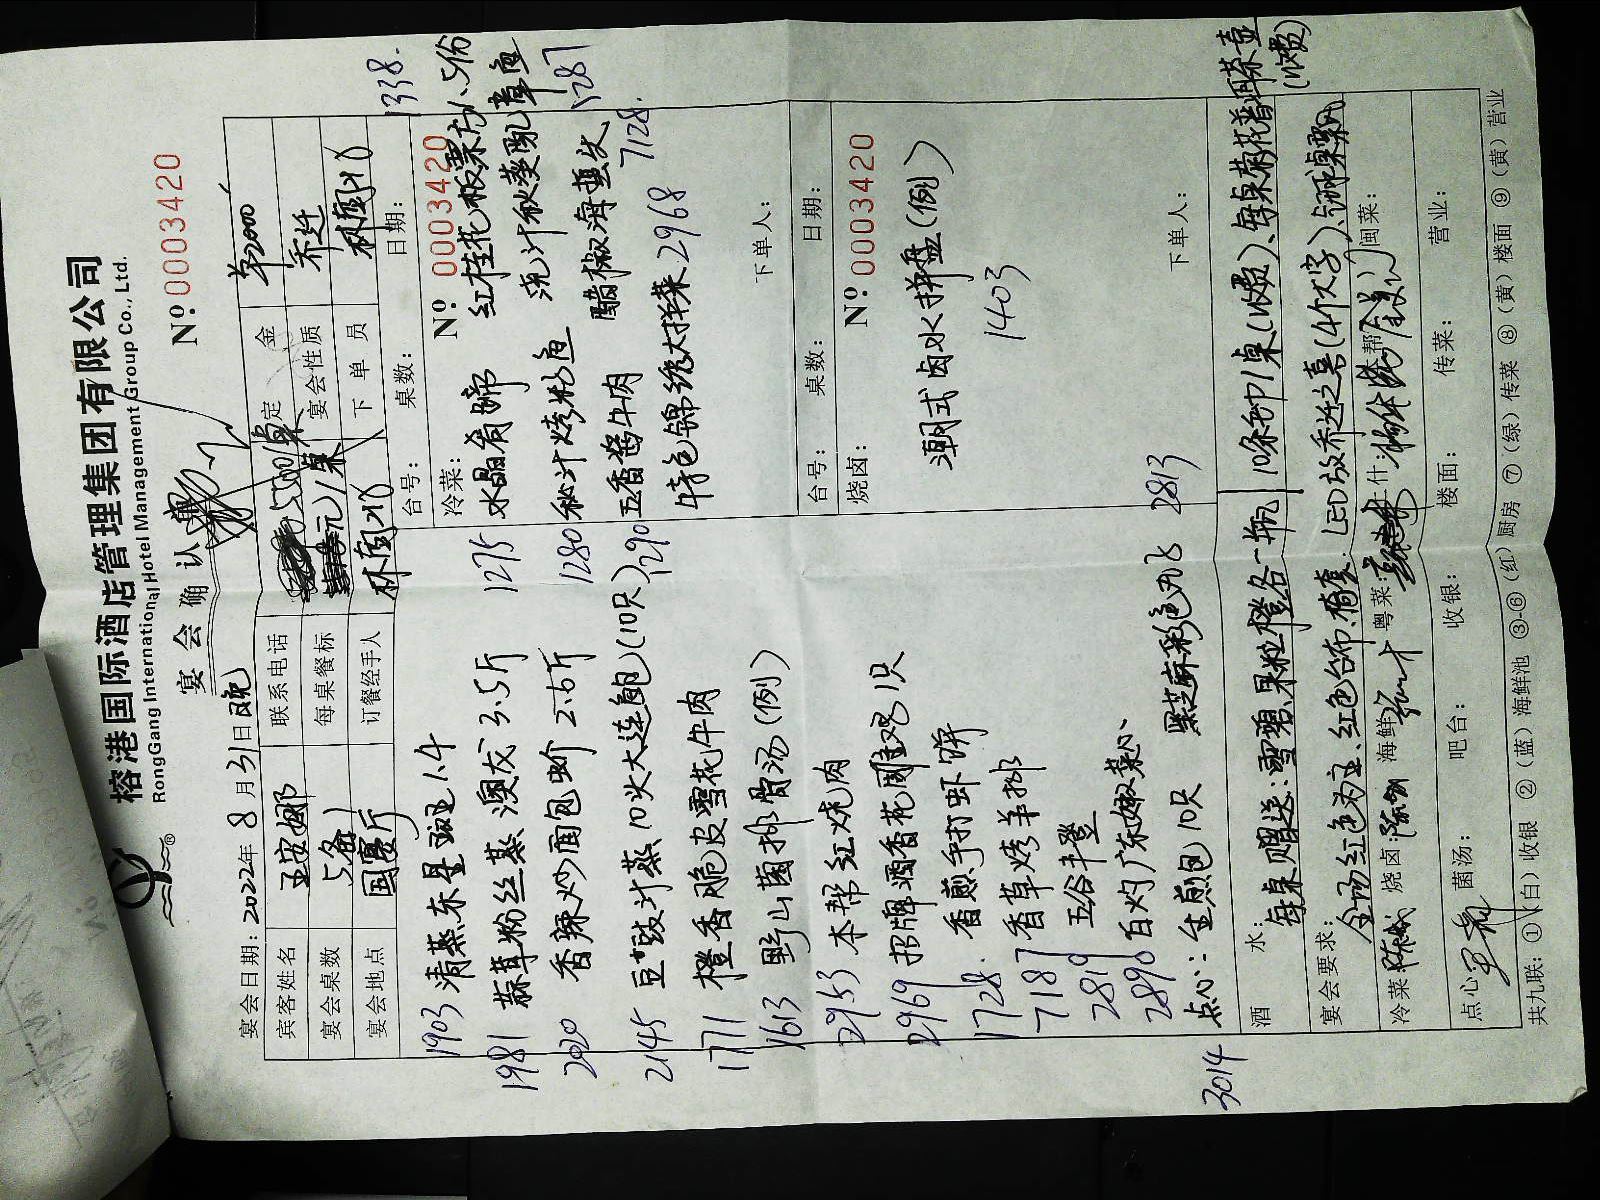 榕港国际酒店管理集团有限公司
RongGang International Hotel Management Group Co., Ltd.
宴会确认
Nº 0003420
宴会日期：2022年8月31日晚
宾客姓名 王安娜 联系电话 定金 单2000
宴会桌数 5备1 每桌餐标 元/桌 宴会性质 乔迁
宴会地点 国宴厅 订餐经手人 下单员
台号： 桌数： 日期：
1338.
冷菜： Nº 0003420
1275 水晶肴蹄 红桂花板栗
1280 秘汁烤 浇汁秋葵 章鱼
1290 五香酱牛肉 醋椒海蜇 1287
特色锦绣大拼 2968 7128.
下单人：
台号： 桌数： 日期：
烧卤： Nº 0003420
潮式卤水拼盘(例)
1403
下单人：
1903 清蒸东星斑 1.4
1981 蒜茸粉丝蒸澳龙 3.5斤
2020 香辣炒面包蟹 2.6斤
2145 豆豉汁蒸10头大连鲍(10只)
1711 橙香脆皮雪花牛肉
1613 野山菌排骨汤(例)
2953 本帮红烧肉
2969 招牌酒香花雕鸡1只
1728. 香煎手打虾饼
7187 香草烤羊排
2819 五谷丰登
2890 百灼广东嫩菜心
3014 点心：生煎包10只 黑芝麻彩色丸8 2813
酒水： 每桌赠送：雪碧.果粒橙各一瓶
宴会要求： 全场红色为主.红色台布. LED放乔迁之喜(4个大字)
(收费)
冷菜： 烧卤： 海鲜： 粤菜： 什： 本帮： 闽菜：
点心： 菌汤： 吧台： 收银： 楼面： 传菜： 营业：
共九联：①(白)收银 ②(蓝)海鲜池 ③-⑥(红)厨房 ⑦(绿)传菜 ⑧(黄)楼面 ⑨(黄)营业